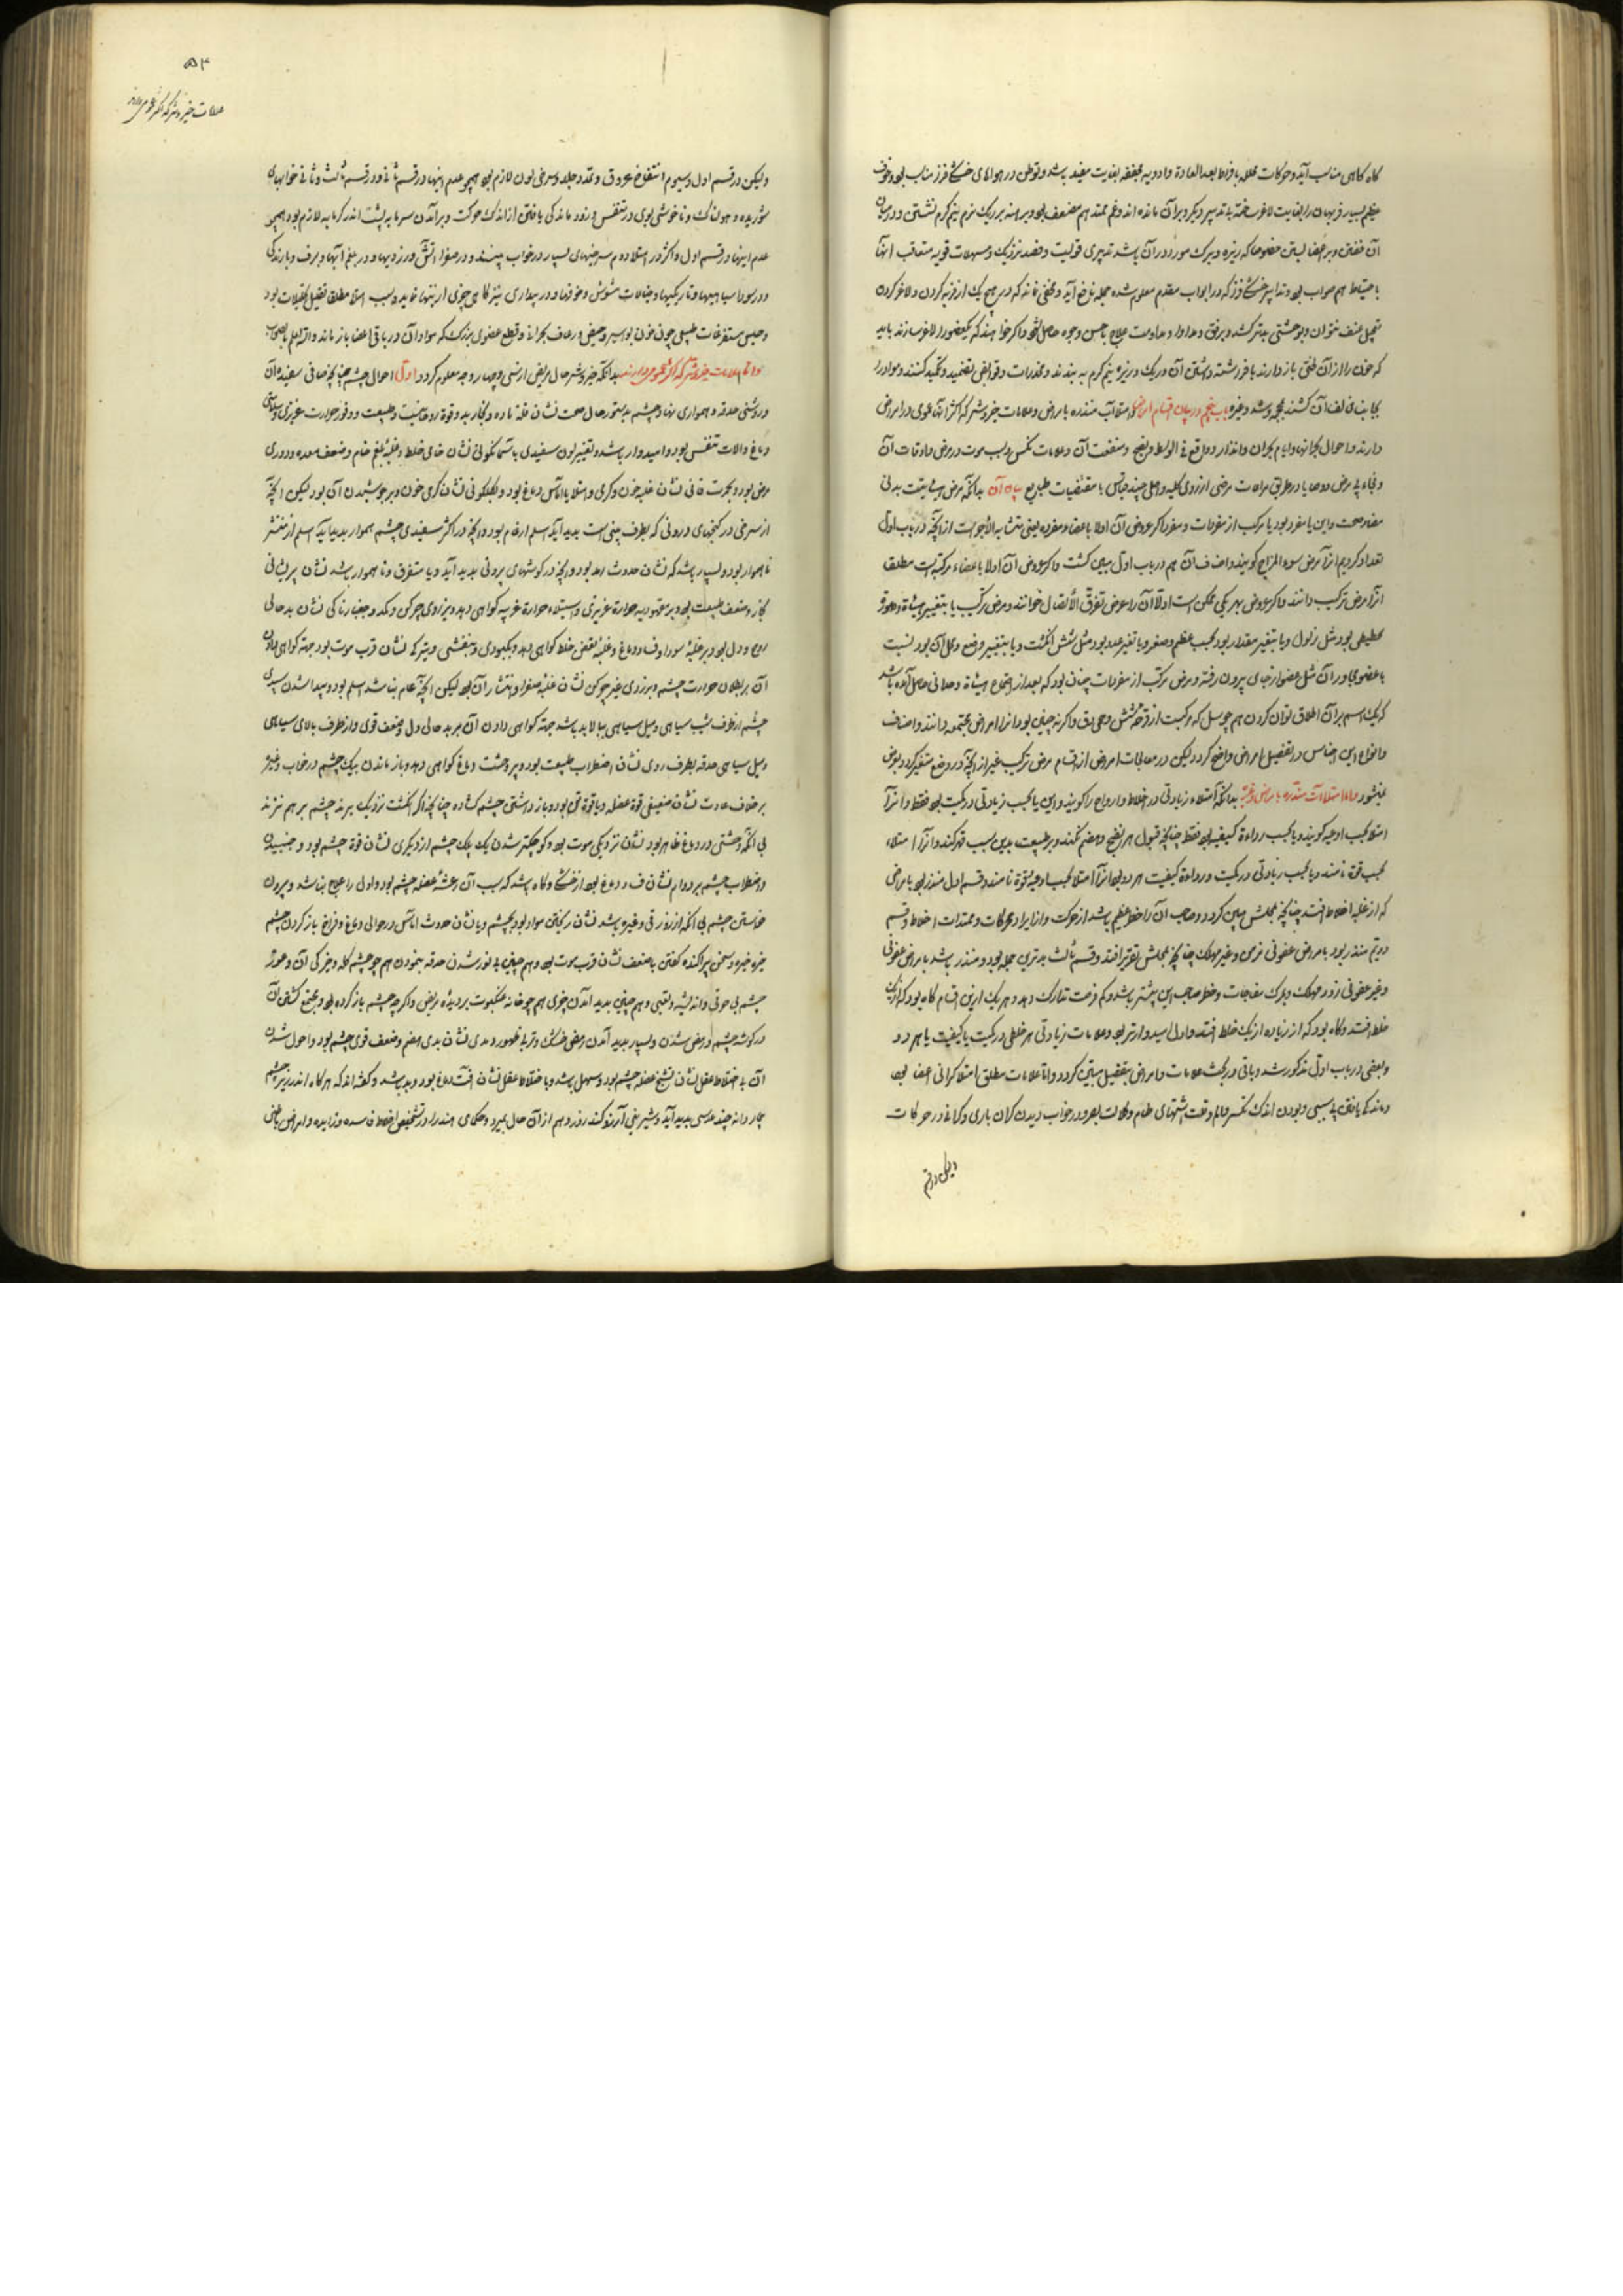 کاه کاهی مناسب آید و حرکات محلله بافراط بعد العادة و ادویه مجففه بغایت مفید باشد و توطن در هواهای خشک
عظیم بسیار فربهان را بغایت لاغر ساخته بتدبیر دیگر و بر آن مانده اند و غم ممتد هم مضعف بود و برهنه بر ریک نرم نیم کرم نشستن و در میان
آن خفتن و بر اعضا بستن خصوصا که ریزه و
باحتیاط هم صواب بود و تدابیر خشکی فزا که در ابواب مقدم معلوم شده جمله نافع آید و مخفی نماند که در هیچ یک از فربه کردن و لاغر کردن
تحمل عنف نتوان و برفق و مدارا و مداومت علاج باحسن وجوه حاصل شود و اکر خواهند که یک عضو را لاغر سازند باید
که خون را از آن
باب پنجم در بیان اقسام امراض و امتلاآت منذره بامراض و علامات خیر و شر که اکثر آنها عمومی در امراض
دارند و احوال بحرانها و ایام بحران و انذار و واقع فی الوسط و نضج و منفعت آن و علامات نکس و سبب موت در مرض و اوقات آن
بیان آن بدانکه مرض هیئتیست بدنی
مضاد صحت و این یا مفرد بود یا مرکب از مفردات و مفرد اکر عروض آن اولا باعضاء مفرده یعنی متشابه الأجزاست از آنچه در باب اول
تعداد کردیم آنرا مرض سوء المزاج کویند و اصناف آن هم در باب اول مبین کشت و اکر عروض آن اولا باعضاء مرکبه است مطلق
آنرا مرض ترکیب دانند و اکر عروض بهر یکی ممکن است اولا آن را مرض تفرق الأتصال خوانند و مرض ترکیب یا بتغییر هیئاة
بود مثل زلول و یا بتغیر مقدار بود بحسب عظم و صغر و یا تغیر عدد بود مثل شش انکشت و یا بتغییر وضع و محل آن بود نسبت
با عضو مجاور آن مثل عضو از جای بیرون رفته و مرض مرکب از مفردات چنان بود که بعد از اجتماع هیئاة وحدانی حاصل آمده باشد
که یک اسم بر آن اطلاق توان کردن هم چو سل که مرکبست از قرحه شش و حمی دق و اکر نه چنین بود آنرا امراض مجتمعه دانند و اصناف
و انواع این اجناس در تفصیل امراض واضح کردد لیکن در معالجات امراض از اقسام مرض ترکیب غیر از آنچه در وضع متغیر کردد
نمیشود و اما امتلاآت منذره بامراض بدانکه امتلاء زیادتی در اخلاط و ارواح را کویند و این یا بحسب زیادتی در کمیت بود فقط و آنرا
امتلا بحسب اوعیه کویند و یا بحسب رداءة کیفیه بود فقط چنانچه قبول هر نضج و هضم نکند و بر طبیعت بدین سبب قهر کند و آنرا امتلاء
بحسب قوة نامند و یا بحسب زیادتی در کمیت و رداءة کیفیت هر دو بود آنرا امتلا بحسب اوعیه و قوة نامند و قسم اول منذر بود بامراضی
که از غلبه اخلاط افتد چنانچه بمحلش مبین کردد و صاحب آن را خطر عظیم باشد از حرکت و از ایراد محرکات و ممدات اخلاط و قسم
دویم منذر بود بامراض عفونی نرم و غیر مهلک چنانچه بمحلش تقریر افتد و قسم ثالث بدترین جمله بود و منذر باشد بامراض عفونی
و غیر عفونی زود مهلک و بمرک مفاجات و خطر صاحب این بیشتر باشد و کم فرصت تدارک دهد و هر یک ازین اقسام کاه بود که از یک
خلط افتد و کاه بود که از زیاده از یک خلط افتد و اول امیدوارتر بود و علامات زیادتی هر خلطی در کمیت یا کیفیت یا هر دو
و بعضی در باب اول مذکور شد و باقی در بحث علامات و امراض بتفصیل مبین کردد و اما علامات مطلق امتلا کرانی اعضا بود
و ماندکی یافتن بی سببی و بودن اندک تکسر و الم و قلت اشتهای طعام و کلالت بصر و در خواب دیدن کران باری و کرانی در حرکات
ولیکن در قسم
۵۴
علامات خیر و شر که اکثر عموم دارند
ولیکن در قسم اول و سیوم انتفاخ عروق و تمدد جلد و سرخی لون لازم بود همچو عدم اینها در قسم ثانی و در قسم ثالث و ثانی خوابهای
شوریده و هولناک و ناخوشی بوی در تنفس و زود ماندکی یافتن از اندک حرکت و بر آمدن سرما به پشت اندر کرمابه لازم بود همچو
عدم اینها در قسم اول و اکثر در امتلاء دم سرخیهای بسیار در خواب بیند و در صفرا آتش و زردیها و در بلغم آبها و برف و بارندکی
و در سودا سیاهیها و تاریکیها و خیالات مشوش و خوفها و در بیداری نیز کاهی چیزی ازینها نماید و سبب امتلا مطلق تقلیل تحلیلات بود
و حبس مستفرغات طبیعی چون خون بواسیر و حیض و رعاف بحرانی و قطع عضوی بزرک که مواد آن در باقی اعضا باز ماند و الله اعلم بالصواب
و اما علامات خیر و شر که اکثر عموم دارند بدانکه خیر و شر حال مریض از سی و چهار وجه معلوم کردد اول احوال چشم چنانچه صافی سفیده آن
و روشنی حدقه و همواری نهاد چشم بدستور حال صحت نشان قلة ماده و بکار بد و قوة روحانیت و طبیعت و وفور حرارت غریزی و سلامتی
دماغ و الات تنفس بود و امیدوار باشد و تغییر لون سفیدی باسمانکونی نشان خامی خلط و غلبه بلغم خام و ضعف معده و دوری
مرض بود و بحمرت قانی نشان غلبه خون و کرمی و امتلا یا اماس دماغ بود و بکلکونی نشان کرمی خون و بر جوشیدن آن بود لیکن آنچه
از سرخی در کنجهای درونی که بطرف بینی است بدید آید اسلم ارقام بود و آنچه در اکثر سفیدی چشم هموار بدید آید اسلم از منتشر
ناهموار بود و بسیار باشد که نشان حدوث رمد بود و آنچه در کوشهای برونی بدید آید و یا متفرق و ناهموار باشد نشان پریشانی
بخار و ضعف طبیعت بود و بر مقهوریه حرارة غریزی و استیلاء حرارة غریبه کواهی دهد و بزردی چرکن و مکدر و بغبارناکی نشان بد حالی
روح و دل بود و بر غلبه سودا و فساد دماغ و غلبه بعض خلط کواهی دهد و بکبودی و بنفشی و تیرکی نشان قرب موت بود جهة کواهی دادن
آن بر بطلان حرارت چشم و بزردی غیر چرکن نشان غلبه صفرا و انتشار آن بود لیکن آنچه عام نباشد اسلم بود و پیدا شدن سپیدی
چشم از طرف شیب سیاهی و میل سیاهی ببالا بد باشد جهة کواهی دادن آن بر بد حالی دل و ضعف قوی و از طرف بالای سیاهی
و میل سیاهی حدقه بطرف روی نشان اضطراب طبیعت بود و بر وحشت دماغ کواهی دهد و باز ماندن یک چشم در خواب و غیره
بر خلاف عادت نشان ضعیفی قوة عضله و یا قوة تن بود و باز داشتن چشم کشاده چنانچه اکر انکشت نزدیک برند چشم بر هم نزند
بی آنکه وحشتی در دماغ ظاهر بود نشان نزدیکی موت بود و کوچکتر شدن یک پلک چشم از دیکری نشان قوة چشم بود و جنبیدن
و اضطراب چشم بر دوام نشان فساد دماغ بود از خشکی و کاه باشد که سبب آن رعشه عضله چشم بود و اول را علاج نباشد و بیرون
خاستن چشم بی آنکه از زور قی و غیره باشد نشان ریختن مواد بود بچشم و یا نشان حدوث اماس در حوالی دماغ و فراخ باز کردن چشم
خیره خیره و سخن پراکنده کفتن با ضعف نشان قرب موت بود و هم چنین بی نور شدن حدقه بنمودن هم چو چشم کله و خیرکی آن و غور
چشم بی حرقی و اندیشه و تعبی و هم چنین بدید آمدن چیزی هم چو خانه عنکبوت بر دیده مریض و اکرچه چشم باز کرده بود و مجتمع کشتن آن
در کوشه چشم و رمص شدن و بسیار بدید آمدن رمص خشک و تر با ظهور و بدی نشان بدی هضم و ضعف قوی چشم بود و احول شدن
آن بی اختلاط عقل نشان تشنج عضله چشم بود و سهل باشد و با اختلاط عقل نشان افت دماغ بود و بد باشد و کفته اند که هر کاه اندر زیر چشم
بیمار دانه چند عدسی بدید آید و شیرینی آرزو کند روز دهم از آن حال بمیرد و حکمای هند را در تشخیص اخلاط فاسده و زایده و امراض باطنی